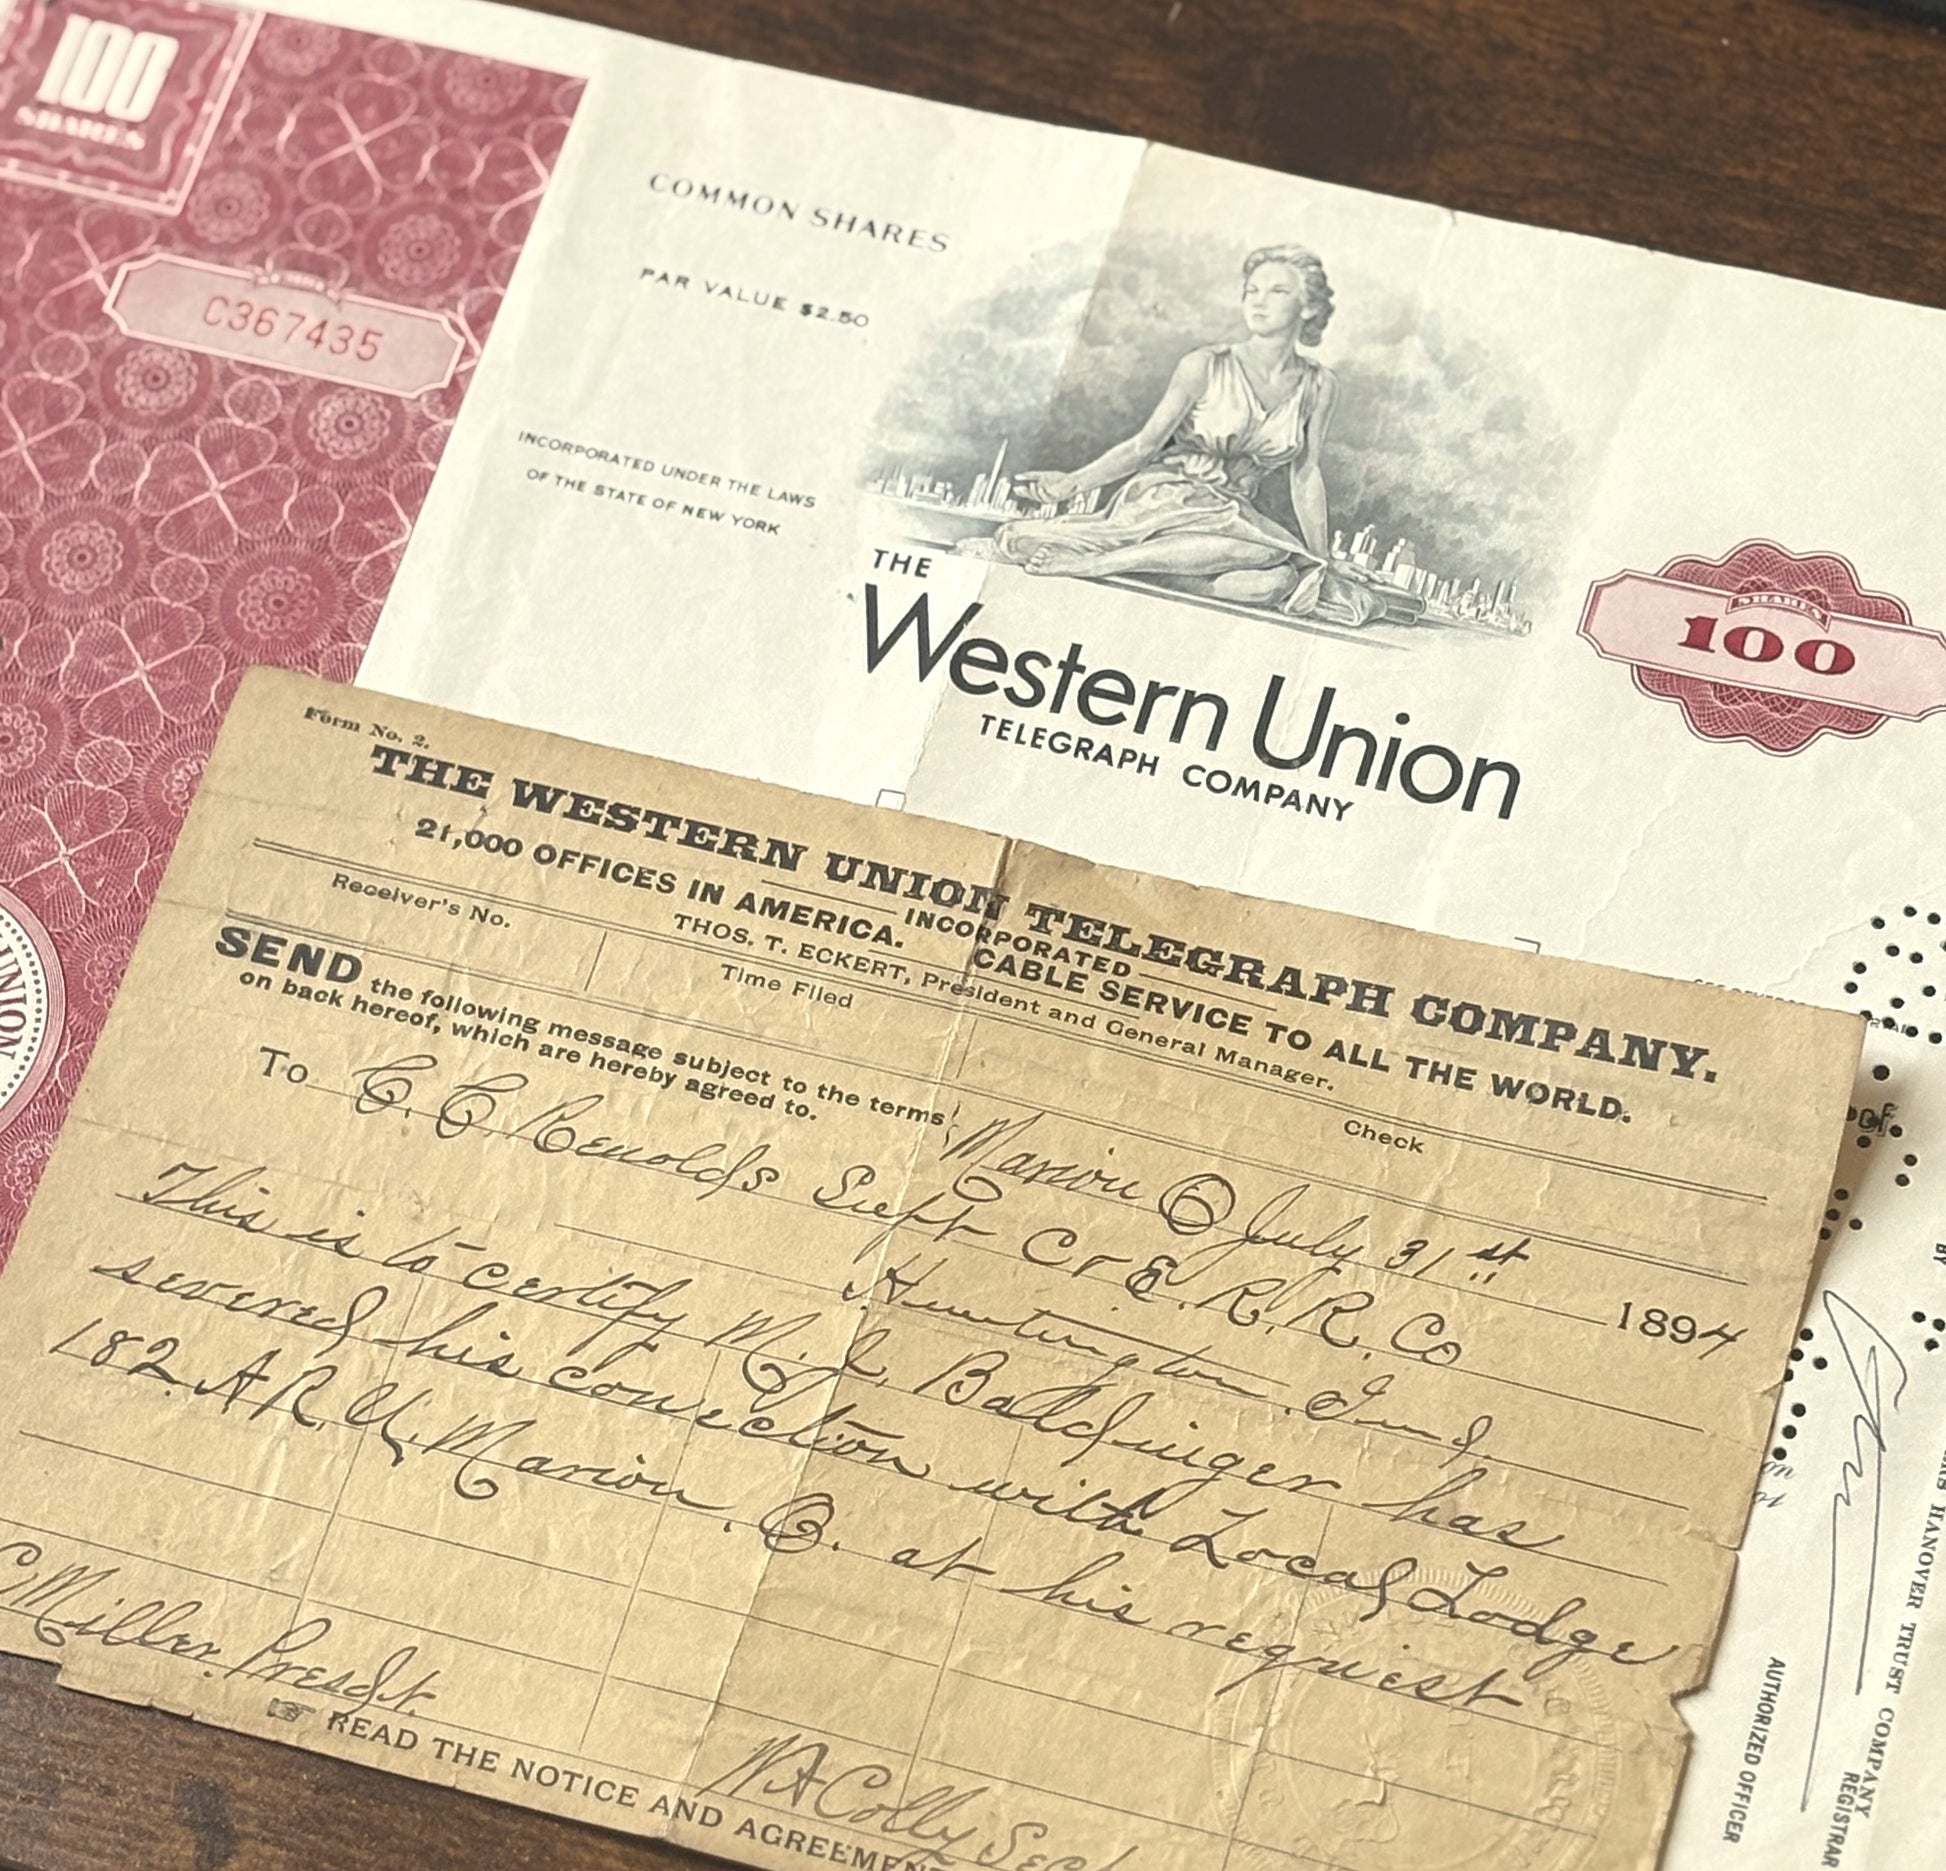 100
SHARES
C367435
COMMON SHARES
PAR VALUE $2.50
INCORPORATED UNDER THE LAWS
OF THE STATE OF NEW YORK
THE
Western Union
TELEGRAPH COMPANY
SHARES
100
UNION
Form No. 2.
THE WESTERN UNION TELEGRAPH COMPANY.
INCORPORATED
21,000 OFFICES IN AMERICA. CABLE SERVICE TO ALL THE WORLD.
THOS. T. ECKERT, President and General Manager.
Receiver's No. Time Filed Check
SEND the following message subject to the terms
on back hereof, which are hereby agreed to.
Marion O July 31st 1894
To C. C. Renolds Supt C & E. R. R. Co
Huntington. Ind.
This is to certify M. J. Baldinger has
severed his conection with Local Lodge
182 A R. U. Marion. O. at his request
C Miller. Presdt.
W A Colly Sec
READ THE NOTICE AND AGREEMEN
BY
HANOVER TRUST COMPANY
REGISTRAR
AUTHORIZED OFFICER